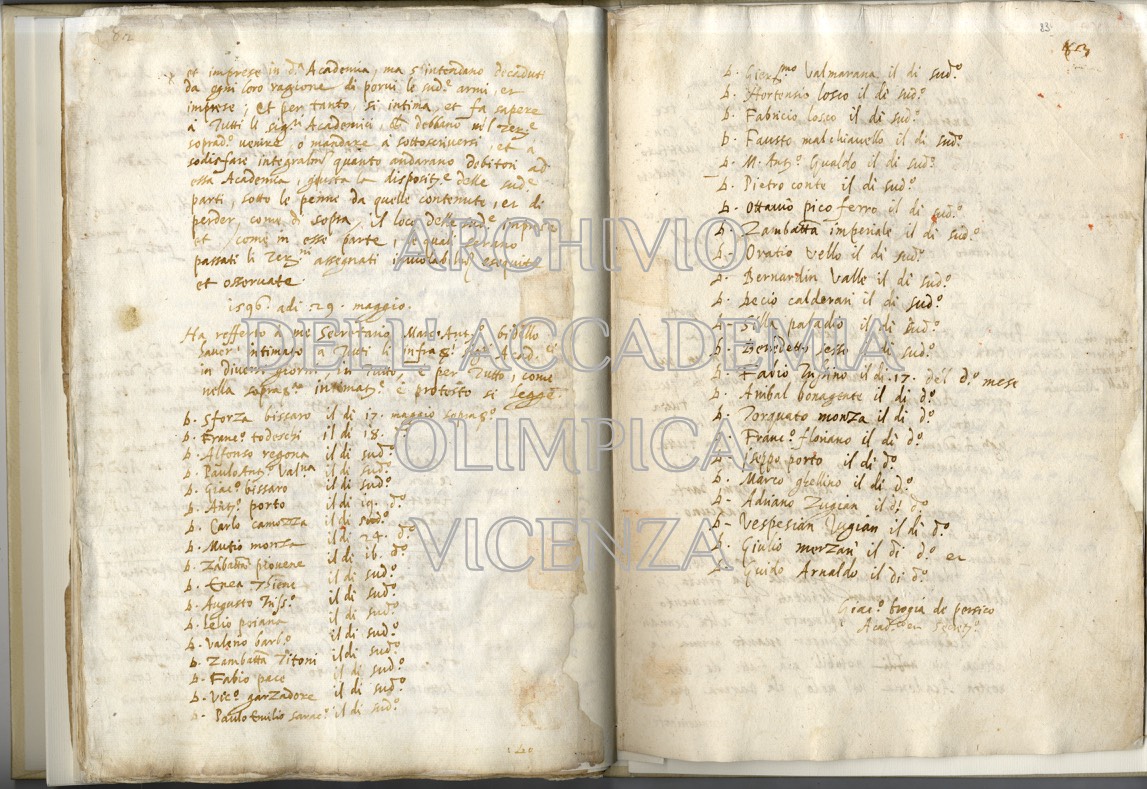 et imprese in d.ª Academia, ma s'intendano decaduti
da ogni loro ragione di porui le sud.e armi, et
imprese; Et per tanto, si intima, et fa sapere
à Tutti li sig.ri Academici, debbano nel
soprad.º venire, ò mandare à sottoscriuersi, et à
sodisfare integralm.te quanto andarano debitori ad
essa Academia, giusta la disposit.e delle sud.e
parti, sotto le penne da quelle contenute, et di
perder, come di sopra, il loco delle sud.e imprese
et, come in esse parte, le quali serano
passati li assegnati, eseguite
et osseruate.
1596. adi .29. maggio.
Ha refferto à me Secretario Marc'Ant.º bidello
hauer intimato à Tuti li infras.ti Acad.ci
in diuersi giorni in Tutto, e per Tutto, come
nella sopras.ta intimat.e è protesto si legge.
D. Sforza bissaro il di 17. maggio sopras.º
D. Franc.º todeschi il di 18. d.º
D. Alfonso regona il di sud.º
D. Paulo Ant.º Val.na il di sud.º
D. Giac.º bissaro il di sud.º
D. Ant.º porto il di 19. d.º
D. Carlo camozza il di sud.º
D. Mutio monza il di 24. d.º
D. Zabatta piouene il di 16. d.º
D. Enea Thiene il di sud.º
D. Augusto Triss.º il di sud.º
D. Lelio poiana il di sud.º
D. Valerio barb.º il di sud.º
D. Zambatta Titoni il di sud.º
D. Fabio pace il di sud.º
D. Vic.º garzadore il di sud.º
D. Paulo Emilio sarac.º il di sud.º
83
D. Gier.mo Valmarana il di sud.º
D. Hortensio losco il di sud.º
D. Fabricio losco il di sud.º
D. Fausto malchiauello il di sud.º
D. M. Ant.º Gualdo il di sud.º
D. Pietro conte il di sud.º
D. Ottauio pico ferro il di sud.º
D. Zambatta imperiale il di sud.º
D. Oratio Vello il di sud.º
D. Bernardin Valle il di sud.º
D. Decio calderari il di sud.º
D. Silla paladio il di sud.º
D. Benedetto sesso il di sud.º
D. Fabio Trissino il di .17. del d.º mese
D. Anibal bonagente il di d.º
D. Torquato monza il di d.º
D. Franc.º floriano il di d.º
D. Iseppo porto il di d.º
D. Marco ghellino il di d.º
D. Adriano Zugian il di d.º
D. Vespesian Zugian il di d.º
D. Giulio merzari il di d.º et
D. Guido Arnaldo il di d.º
Giac.º trogia de persico
Acad.co et Secret.º
ARCHIVIO
DELL'ACCADEMIA
OLIMPICA
VICENZA